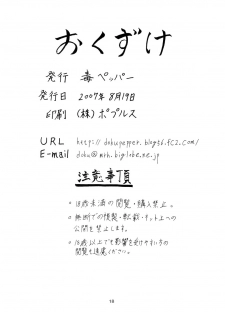 おくずけ
発行 毒ペッパー
発行日 2007年8月19日
印刷 (株)ポプルス
URL http://dokupepper.blog56.fc2.com/
E-mail doku@mth.biglobe.ne.jp
注意事項
・18歳未満の閲覧・購入禁止。
・無断での複製・転載・ネット上への
公開を禁止します。
・18歳以上でも影響を受けやすい方の
閲覧も遠慮ください。
16